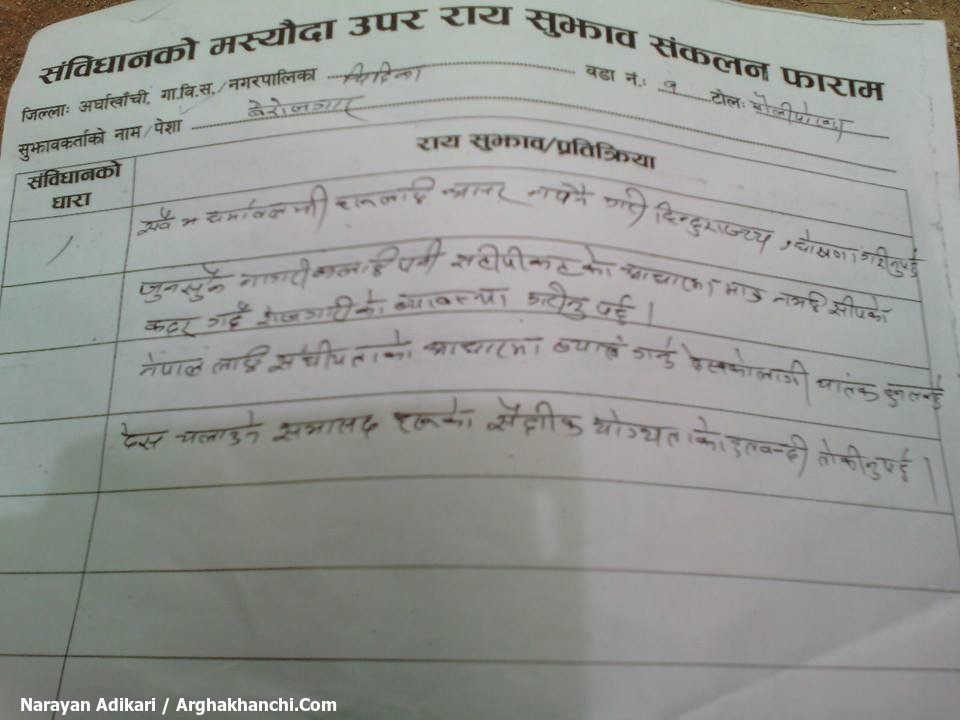 संविधानको मस्यौदा उपर राय सुझाव संकलन फाराम
जिल्लाः अर्घाखाँची, गा.वि.स./नगरपालिका वडा नं.: १ टोलः
सुझावकर्ताको नाम/पेशा बेरोजगार
संविधानको धारा
राय सुझाव/प्रतिक्रिया
सवै धर्मावलम्वी हरूलाई आदर गर्दै हिन्दुराज्य घोषणा गरीनुपर्छ
जुनसुकै नागरीकलाई पनी सर्टीफीकेटको आधारमा मात्र नभई सीपको
कदर गर्दै रोजगारीको व्यावस्था गरीनु पर्छ ।
नेपाल लाई संघीयताको आधारमा गर्नु देसकोलागी घातक हुनसक्छ
देस चलाउने सभासद हरूको सैक्षीक योग्यताको हदवन्दी तोकीनुपर्छ ।
Narayan Adikari / Arghakhanchi.Com